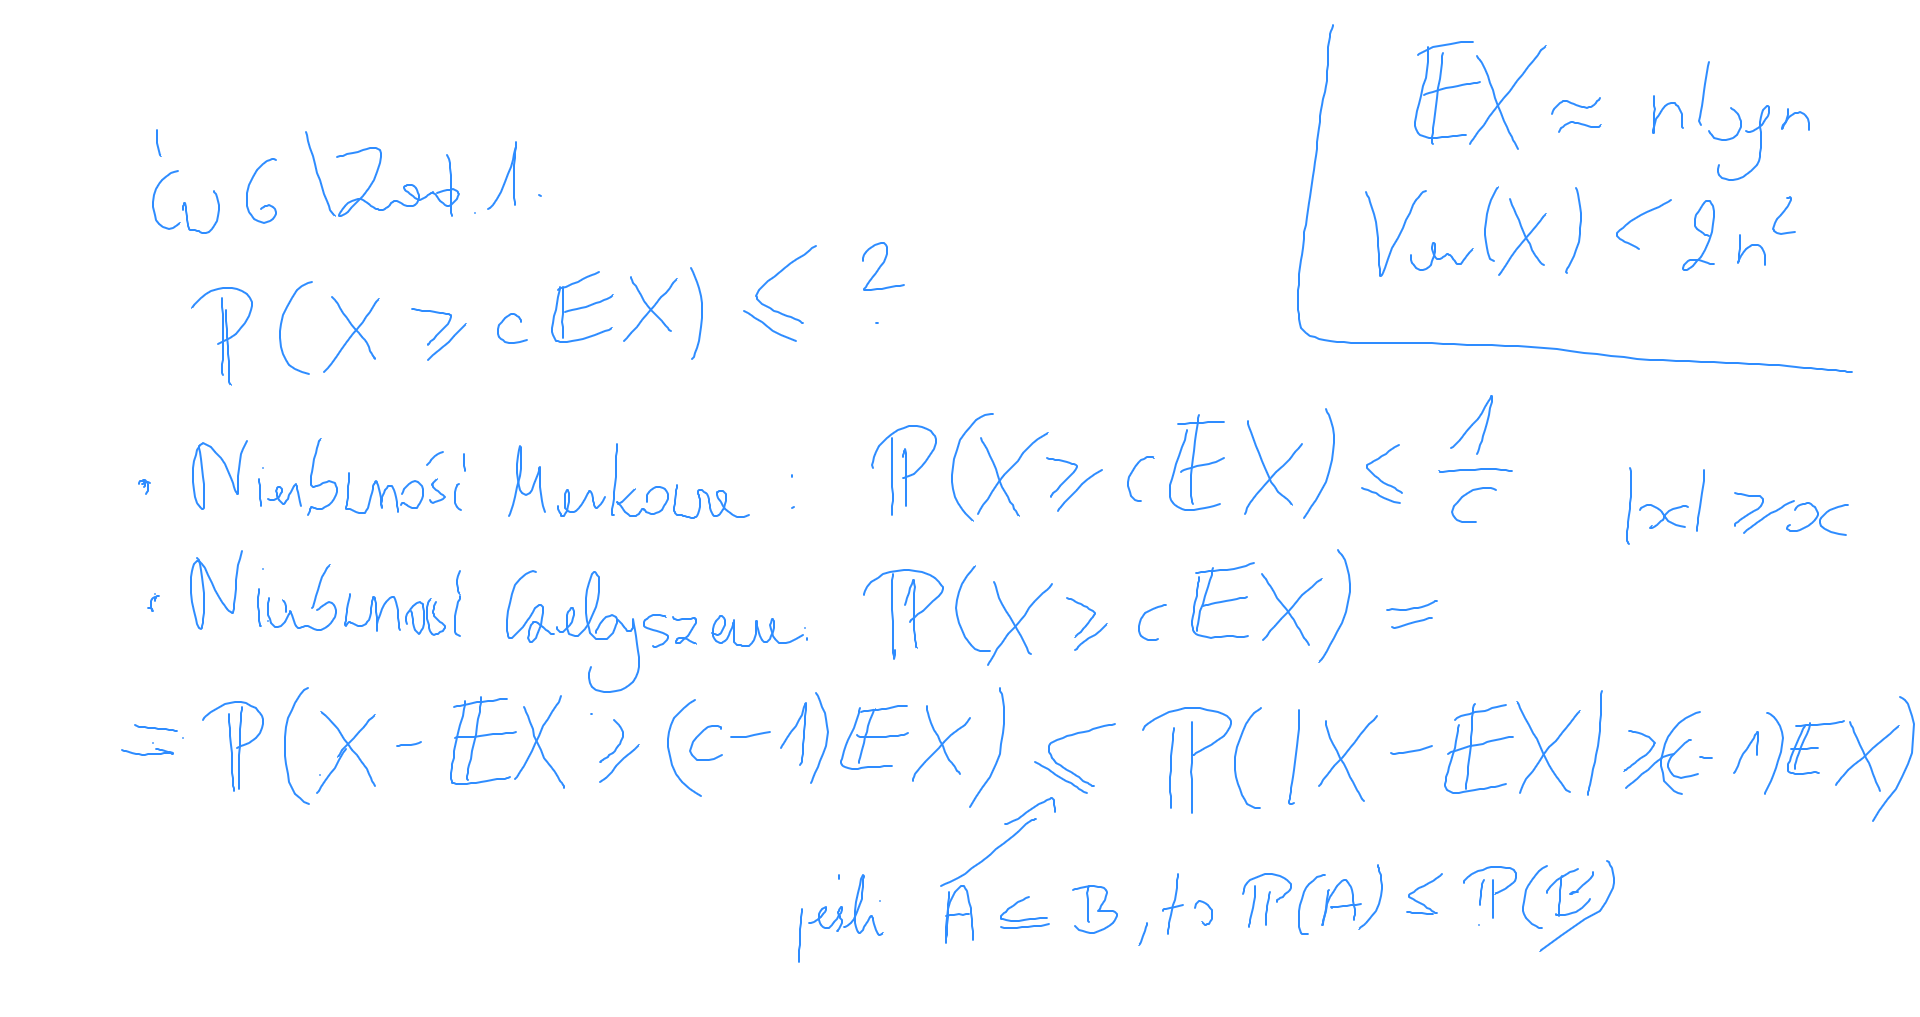 Ćw 6 Zad. 1.
𝔼X ≈ n log n
Var(X) < 2n²
ℙ(X ≥ c𝔼X) ≤ ?
• Nierówność Markowa: ℙ(X ≥ c𝔼X) ≤ 1/c |x| ≥ x
• Nierówność Czebyszewa: ℙ(X ≥ c𝔼X) =
= ℙ(X - 𝔼X ≥ (c-1)𝔼X) ≤ ℙ(|X - 𝔼X| ≥ (c-1)𝔼X)
jeśli A ⊆ B, to ℙ(A) ≤ ℙ(B)